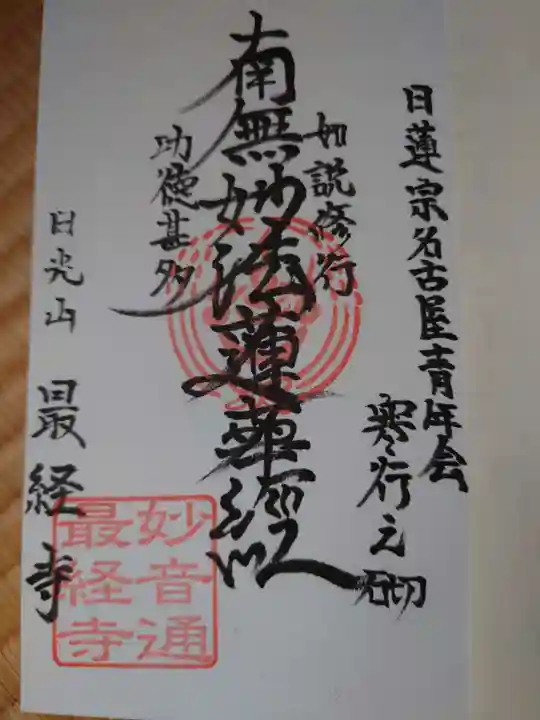 日蓮宗名古屋青年会
寒行之砌
如説修行
南無妙法蓮華経
功徳甚多
日光山
最経寺
妙音通
最経寺